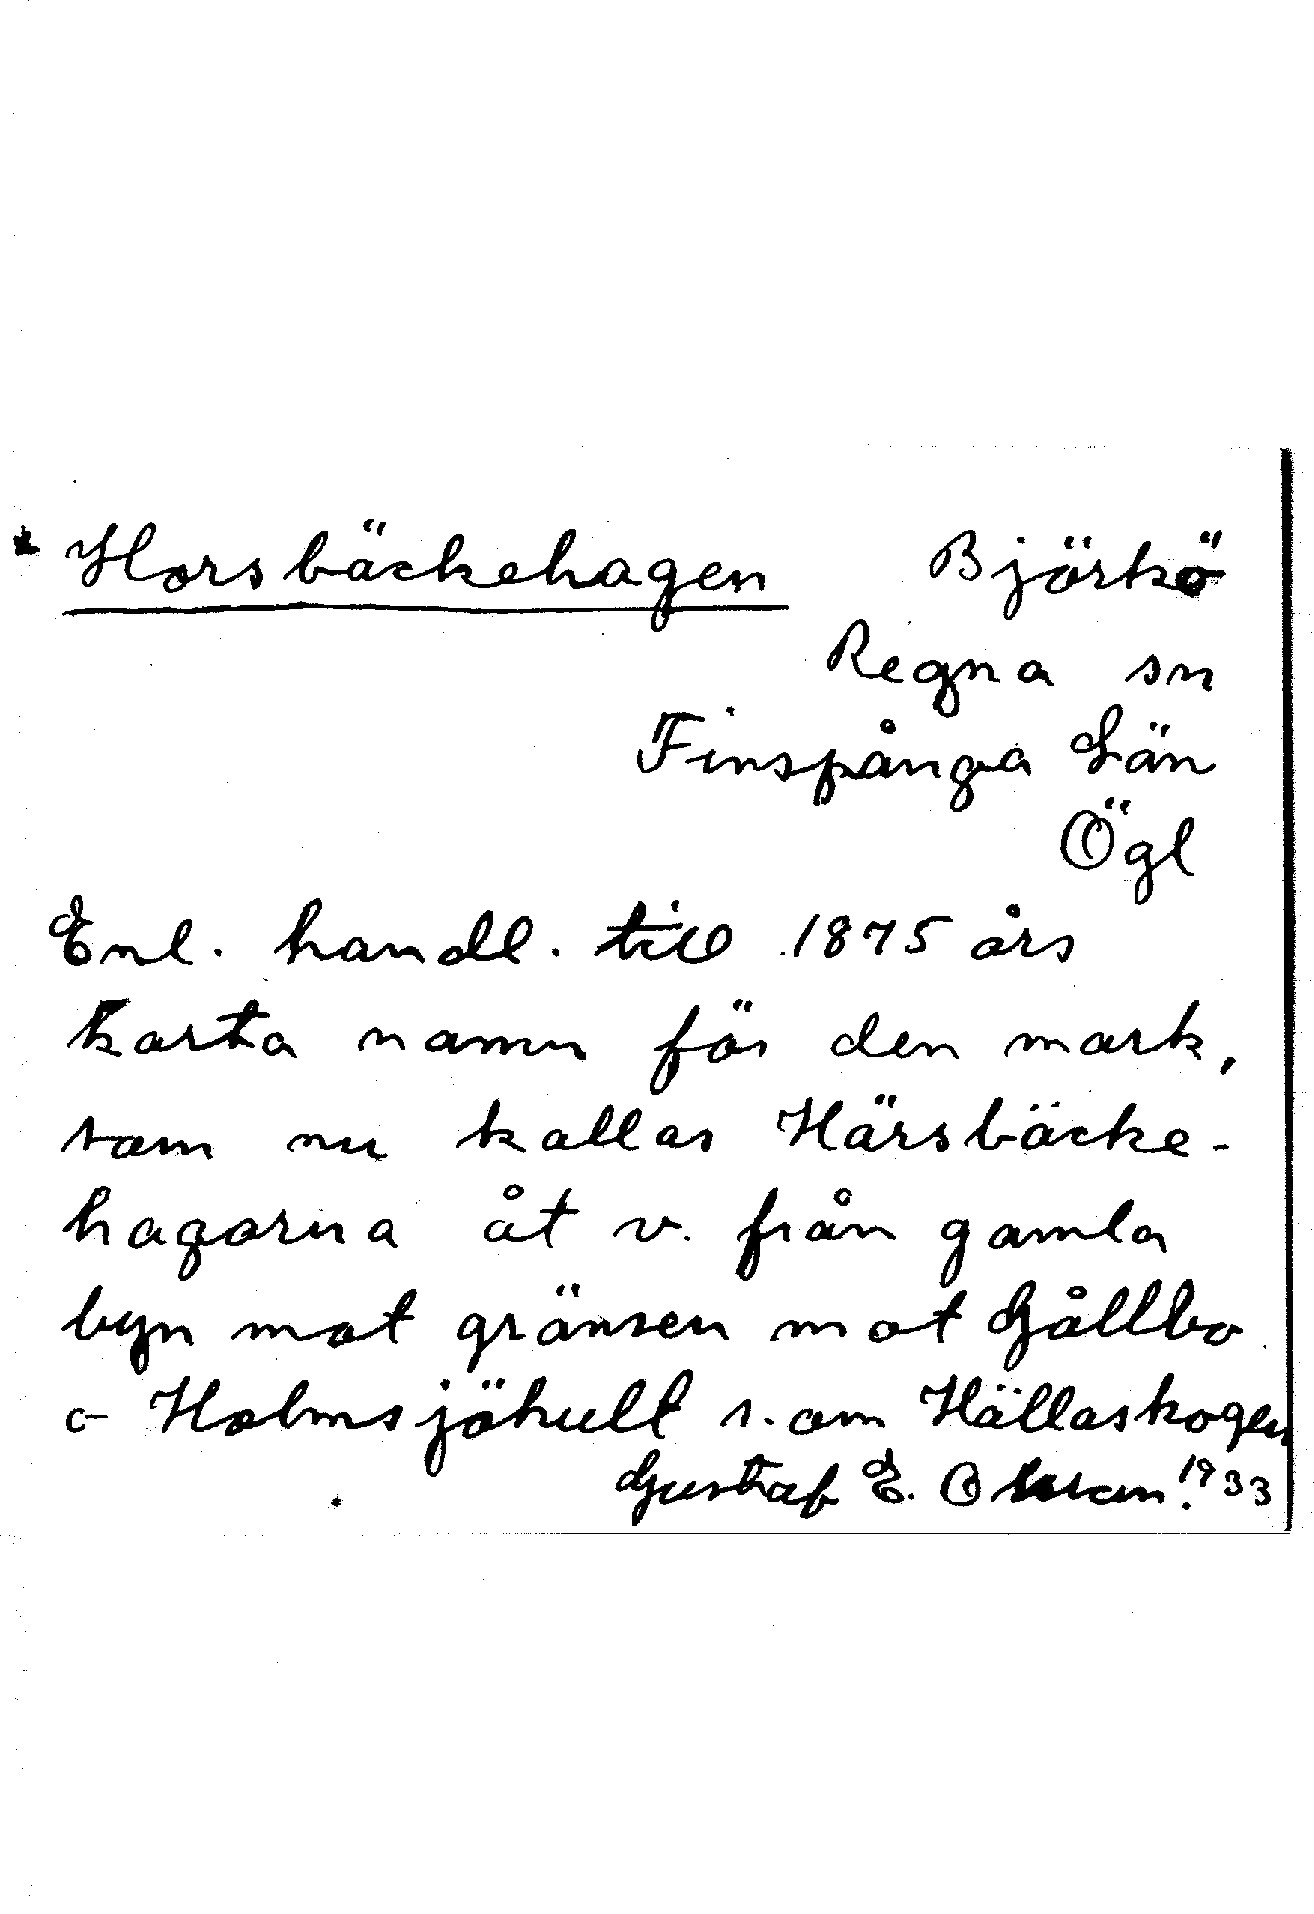 Horsbäckehagen Björkö
Regna sn
Finspånga Län
Ögl
Enl. handl. till 1875 års
karta namn för den mark,
som nu kallas Härsbäcke-
hagarna åt v. från gamla
byn mot gränsen mot Gållbo
o Holmsjöhult s. om Hällaskogen
Gustaf E. Olsson. 1933